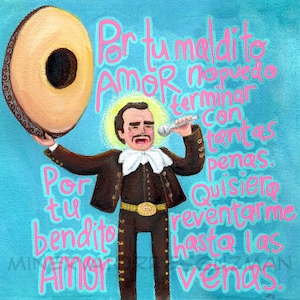 Por tu maldito
AMOR no puedo
terminar
con
tantas
penas.
Quisiera
reventarme
hasta las
venas.
Por
tu
bendito
AMOR